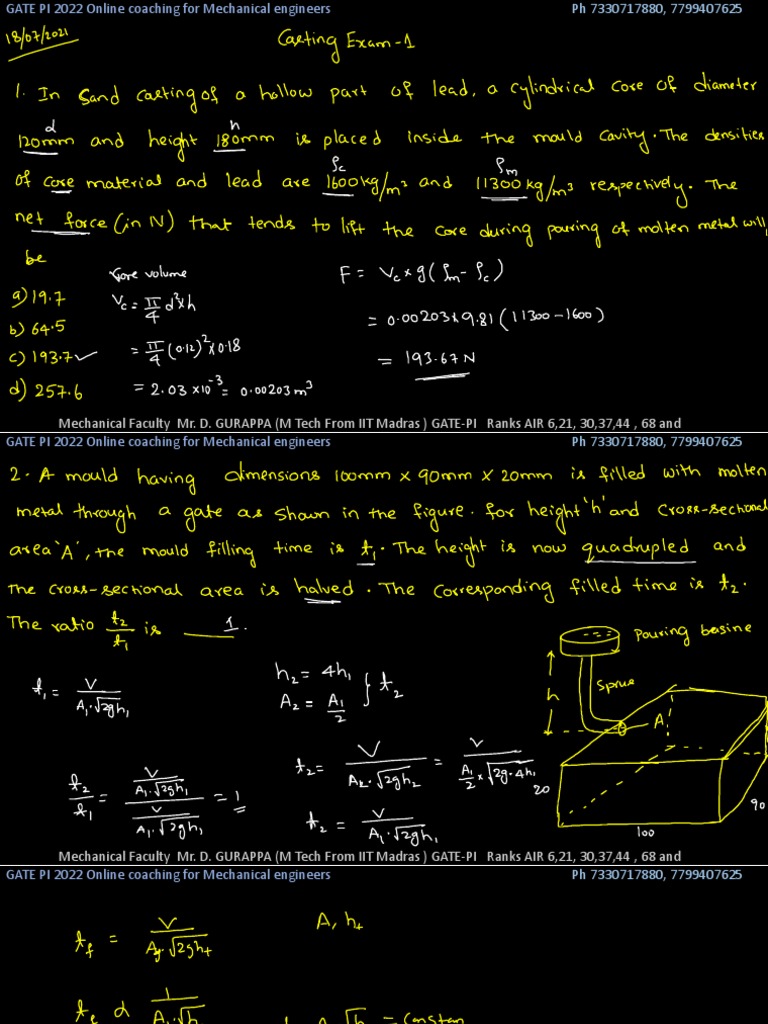 GATE PI 2022 Online coaching for Mechanical engineers Ph 7330717880, 7799407625
18/07/2021
Casting Exam-1
1. In Sand casting of a hollow part of lead, a cylindrical core of diameter
d h
120mm and height 180mm is placed inside the mould cavity. The densities
ρc ρm
of core material and lead are 1600kg/m³ and 11300kg/m³ respectively. The
net force (in N) that tends to lift the core during pouring of molten metal will
be
Core volume F = Vc × g (ρm - ρc)
a) 19.7 Vc = π/4 d² × h
b) 64.5 = 0.00203 × 9.81 (11300 - 1600)
c) 193.7 ✓ = π/4 (0.12)² × 0.18 = 193.67 N
d) 257.6 = 2.03 × 10⁻³ = 0.00203 m³
Mechanical Faculty Mr. D. GURAPPA (M Tech From IIT Madras ) GATE-PI Ranks AIR 6,21, 30,37,44 , 68 and
GATE PI 2022 Online coaching for Mechanical engineers Ph 7330717880, 7799407625
2. A mould having dimensions 100mm × 90mm × 20mm is filled with molten
metal through a gate as shown in the figure. for height 'h' and cross-sectional
area 'A', the mould filling time is t₁. The height is now quadrupled and
The cross-sectional area is halved. The corresponding filled time is t₂.
The ratio t₂/t₁ is 1.
Pouring basine
h₂ = 4h₁
A₂ = A₁/2 } t₂
Sprue
h
A
t₁ = V/(A₁·√2gh₁)
t₂ = V/(A₂·√2gh₂) = V/(A₁/2 × √2g·4h₁)
20
90
100
t₂/t₁ = (V/(A₁·√2gh₁))/(V/(A₁·√2gh₁)) = 1
t₂ = V/(A₁·√2gh₁)
Mechanical Faculty Mr. D. GURAPPA (M Tech From IIT Madras ) GATE-PI Ranks AIR 6,21, 30,37,44 , 68 and
GATE PI 2022 Online coaching for Mechanical engineers Ph 7330717880, 7799407625
tf = V/(Ag·√2ght) A, ht